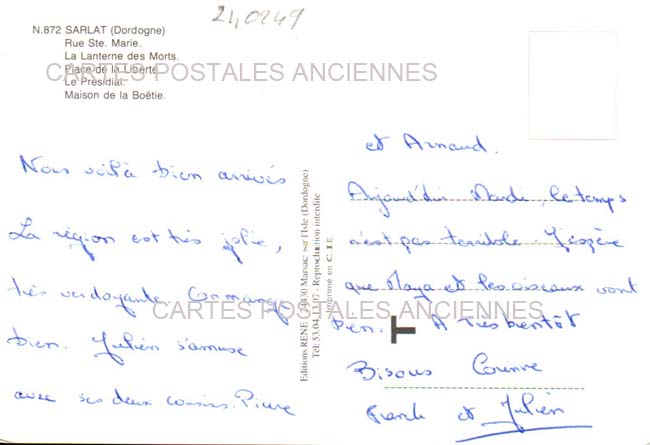 240249
N.872 SARLAT (Dordogne)
Rue Ste. Marie.
La Lanterne des Morts.
Place de la Liberté.
Le Présidial.
Maison de la Boëtie.
CARTES POSTALES ANCIENNES
Nous voilà bien arrivés
La région est très jolie,
très verdoyante. On mange
bien. Julien s'amuse
avec ses deux cousins. Pierre
Editions RENE - 24430 Marsac sur l'Isle (Dordogne)
Tél: 53.04.13.07 - Reproduction interdite
Imprimé en C.I.E.
et Arnaud.
Aujourd'hui Mardi, le temps
n'est pas terrible. J'espère
que Maya et les oiseaux vont
bien. A très bientôt
CARTES POSTALES ANCIENNES
Bisous Corinne
Franck et Julien